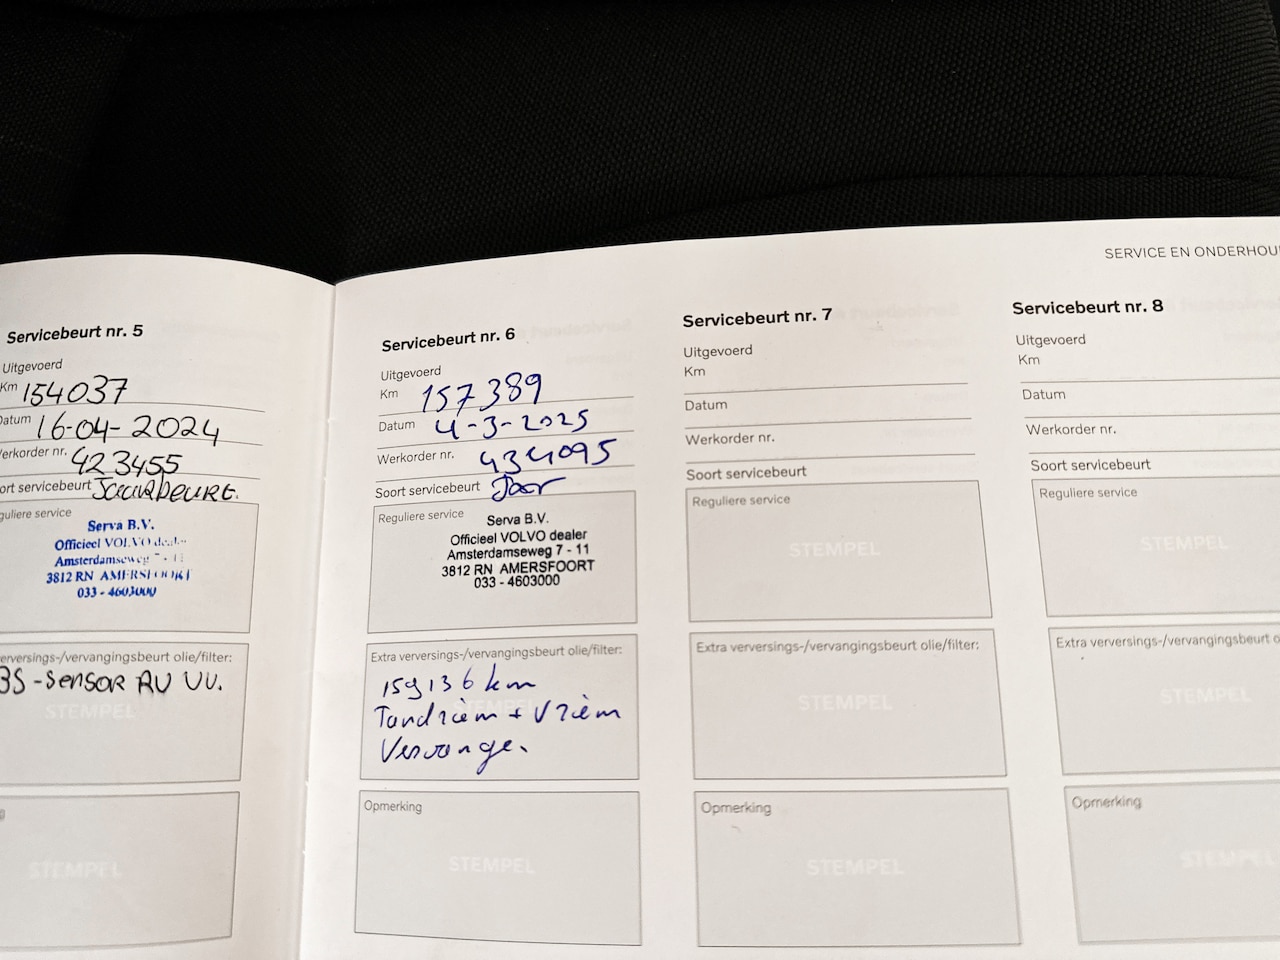 SERVICE EN ONDERHOU
Servicebeurt nr. 5
Uitgevoerd
Km 154037
Datum 16-04-2024
Werkorder nr. 423455
oort servicebeurt Jaarbeurt.
guliere service
Serva B.V.
Officieel VOLVO dealer
Amsterdamseweg 7 - 11
3812 RN AMERSFOORT
033 - 4603000
erversings-/vervangingsbeurt olie/filter:
BS-Sensor AV VV.
STEMPEL
STEMPEL
Servicebeurt nr. 6
Uitgevoerd
Km 157389
Datum 4-3-2025
Werkorder nr. 434095
Soort servicebeurt Jaar
Reguliere service
Serva B.V.
Officieel VOLVO dealer
Amsterdamseweg 7 - 11
3812 RN AMERSFOORT
033 - 4603000
Extra verversings-/vervangingsbeurt olie/filter:
159136 km
Tandriem + Vriem
Vervange.
Opmerking
STEMPEL
Servicebeurt nr. 7
Uitgevoerd
Km
Datum
Werkorder nr.
Soort servicebeurt
Reguliere service
STEMPEL
Extra verversings-/vervangingsbeurt olie/filter:
STEMPEL
Opmerking
STEMPEL
Servicebeurt nr. 8
Uitgevoerd
Km
Datum
Werkorder nr.
Soort servicebeurt
Reguliere service
STEMPEL
Extra verversings-/vervangingsbeurt o
STEMPEL
Opmerking
STEMPEL